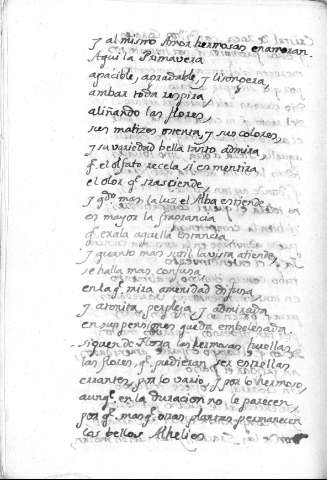 y al mismo Amor hermosas enamoran.
Aqui la Primavera
apacible, agradable, y lisonxera,
ambar toda respira,
aliñando las flores,
sus matizes ostenta, y sus colores,
y su variedad bella tanto admira,
q.e el olfato recela si en mentira
el olor q.e trasciende,
y q.do mas la luz el Alba enciende
es mayor la fragrancia
q.e exala aquella estancia
y quanto mas sutil la vista atiende,
se halla mas confusa
en la q.e mira amenidad difusa
y atonita, perpleja y admirada
en suspensiones queda embelesada.
siguen de Flora las hermosas huellas
las flores, q.e pudieran ser estrellas
errantes, por lo vario, y por lo hermoso,
aunq.e en la duracion no le parecen
por q.e mas q.e otras plantas permanecen
los bellos Alhelies